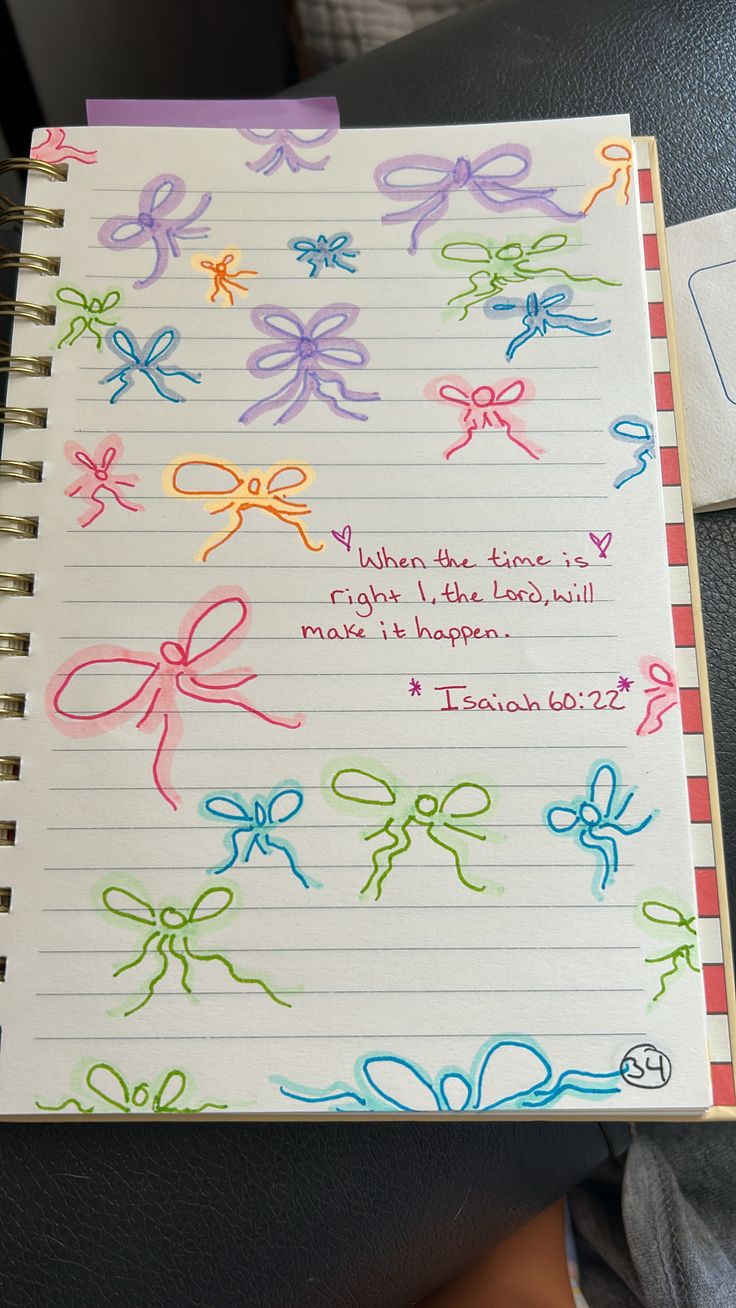 When the time is
right I, the Lord, will
make it happen.
* Isaiah 60:22*
34